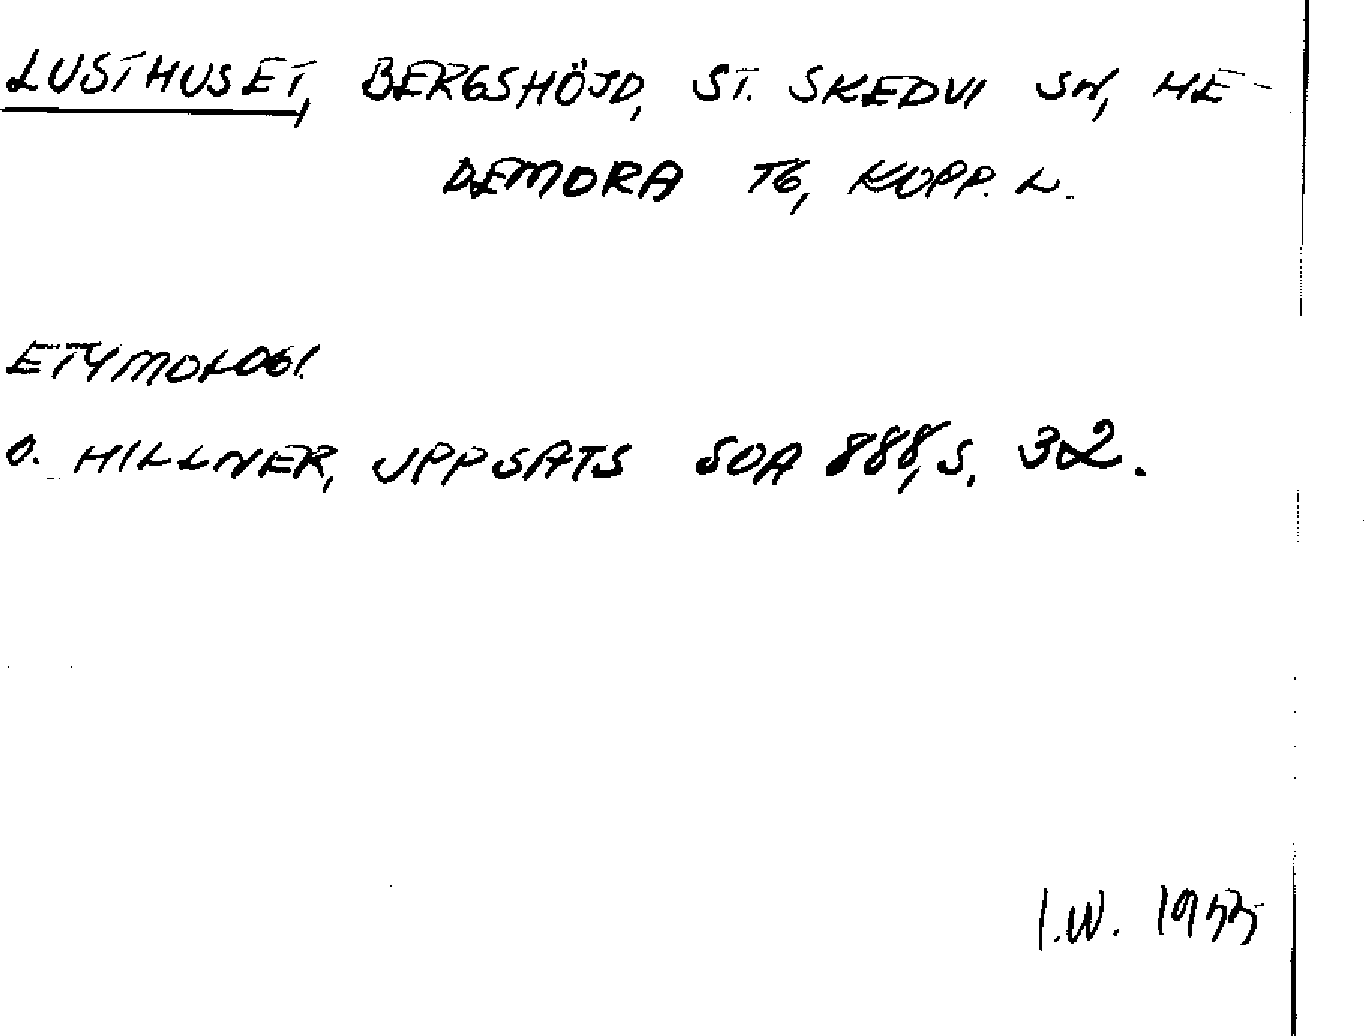 LUSTHUSET, BERGSHÖJD, ST. SKEDVI SN, HE-
DEMORA TG, KOPP. L.
ETYMOLOGI.
O. HILLNER, UPPSATS SOA 888, S. 32.
I.W. 1955